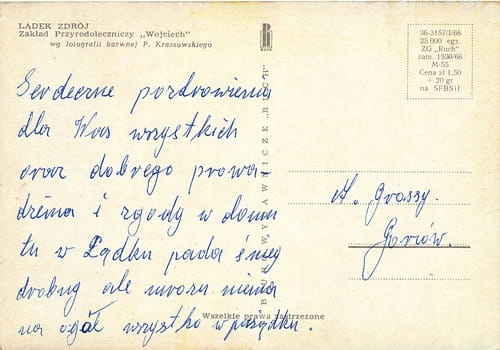 LĄDEK ZDRÓJ
Zakład Przyrodoleczniczy „Wojciech"
wg fotografii barwnej P. Krassowskiego
36-3157/I/66
25 000 egz.
ZG „Ruch"
zam. 1930/66
M-55
Cena zł 1,50
+ 20 gr
na SFBSiI
Serdeczne pozdrowienia
dla Was wszystkich
oraz dobrego prowa
dzenia i zgody w domu
tu w Lądku pada śnieg
drobny ale mrozu niema
na ogół wszystko w porządku.
BIURO WYDAWNICZE „RUCH"
Gorców.
Wszelkie prawa zastrzeżone